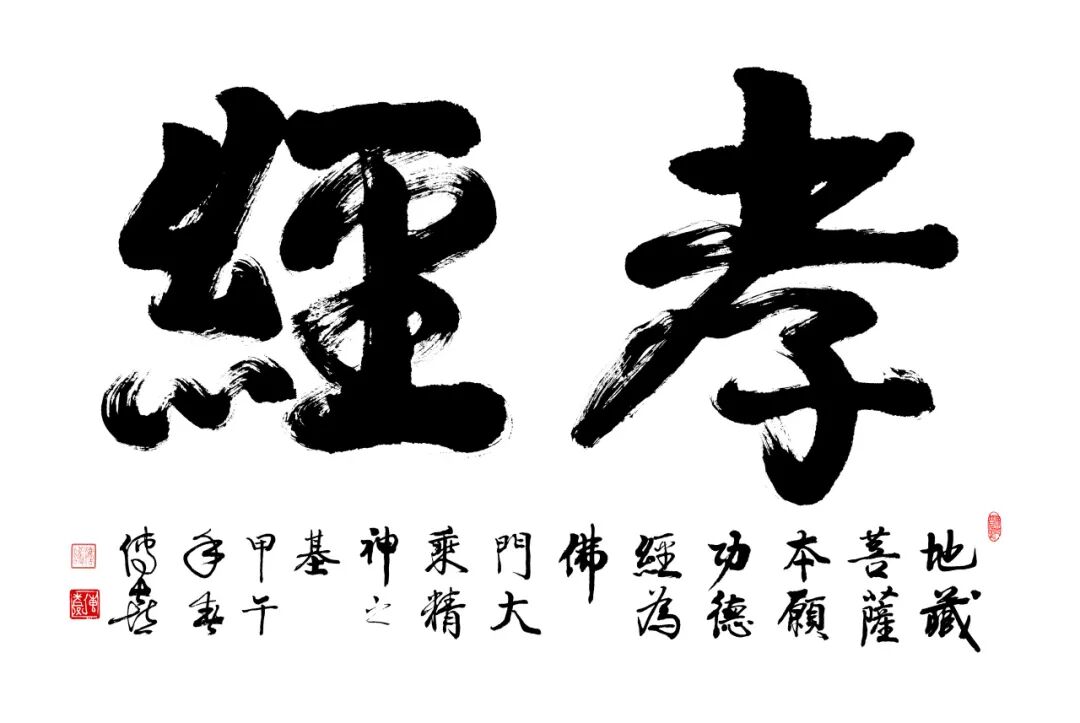 孝經
地藏
菩薩
本願
功德
經為
佛
門大
乘精
神之
基
甲午
年春
傳喜